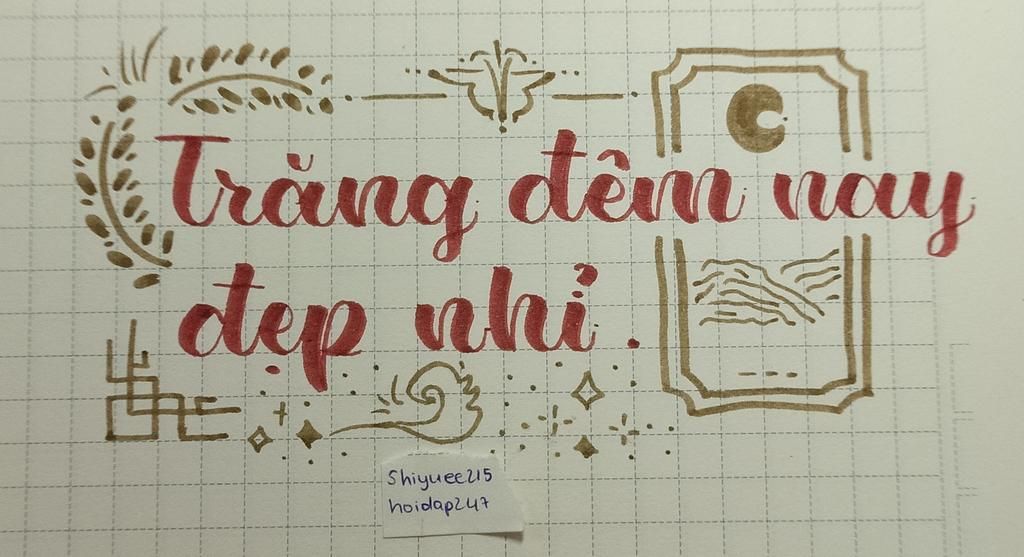 Trăng đêm nay
đẹp nhỉ.
Shiyuee215
hoidap247